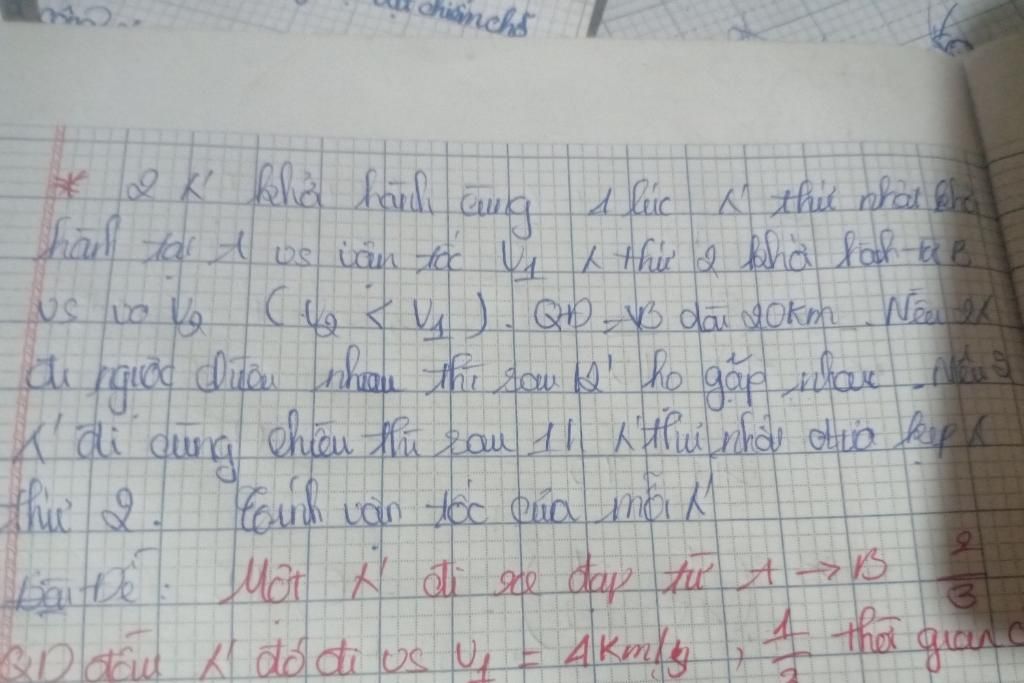 chiến chố
* 2 X' khởi hành cùng 1 lúc X' thứ nhất khở
hành tại A vs vận tốc V1 X thứ 2 khởi hành từ B
vs V2 (V2 < V1). QĐ AB dài 20km. Nếu 2X
đi ngược chiều nhau thì sau 12' họ gặp nhau. Nếu 2
X' đi cùng chiều thì sau 1h X' thứ nhất đuổi kịp X
thứ 2. Tính vận tốc của mỗi X'
Bài Đề: Một X' đi xe đạp từ A → B 2/3
QĐ đầu X' đó đi vs V1 = 4km/g, 1/3 thời gian